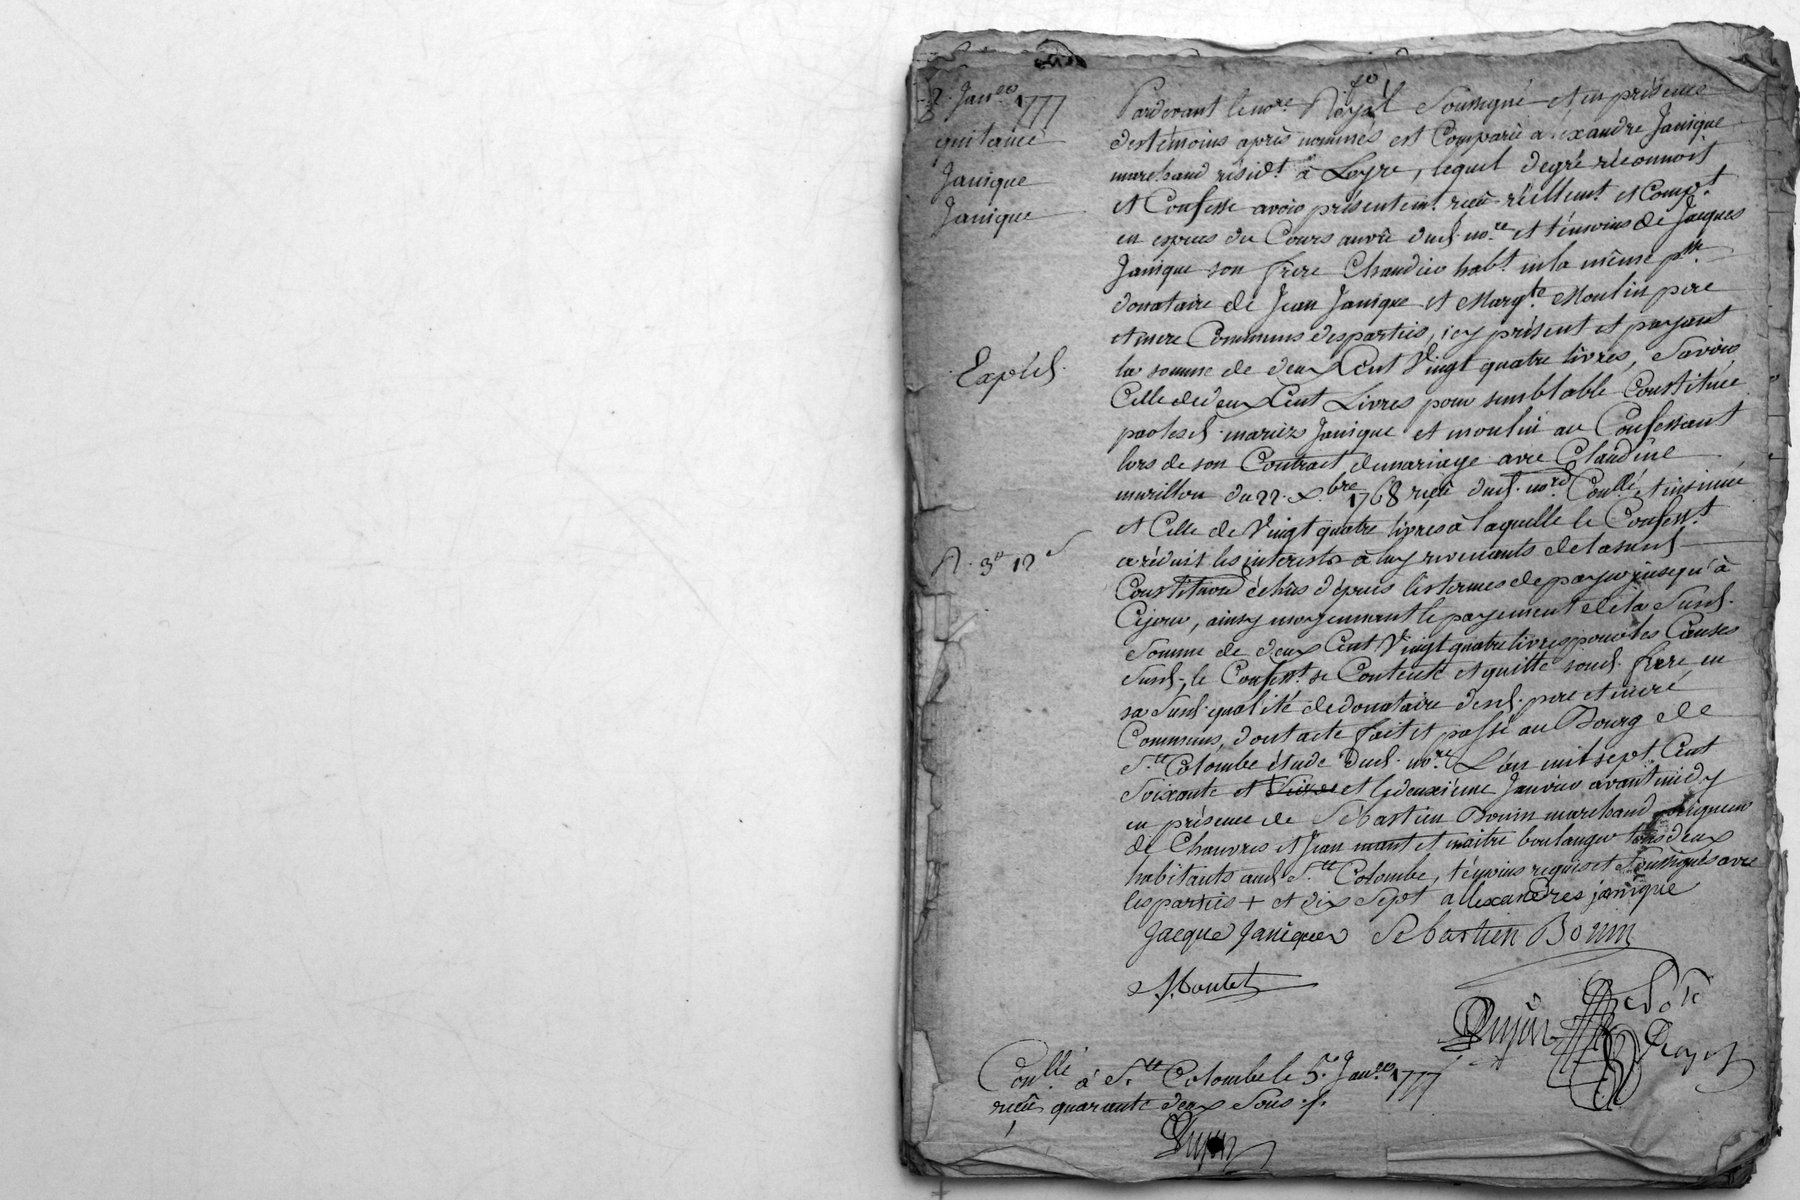 2. Jan.er 1777
quitance
Janique
Janique
Expéd.
R. 3# 12 s
Pardevant le no.re Royal Soussigné et en présence
des témoins après nommés est Comparû alexandre Janique
marchand résid.t à Leyre, lequel de gré réconnoit
et Confesse avoir présentem.t reçû réellem.t et Comp.t
en espèces du Cours au vû dud. no.re et témoins de Jacques
Janique son frere habt. en la même p.sse
donataire de Jean Janique et Marg.te Moulin pere
et mere Communs des parties, icy présent et payant
la somme de deux Cent Vingt quatre livres, Savoir
Celle de deux Cent Livres pour semblable Constituée
par lesd. mariés Janique et moulin au Confessant
lors de son Contract de mariage avec Claudine
murillon du 22. X.bre 1768 reçû dud. no.re Con.llé et insinué
et Celle de Vingt quatre livres à laquelle le Confess.t
a réduit les interests à luy revenants de la susd.
Constitution échus depuis les termes de payer jusqu'à
Cejour, ainsy moyennant le payement de la Susd.
Somme de deux Cent Vingt quatre livres pour les Causes
Susd., le Confess.t se Contente et quitte soud. frere en
sa Susd. qualité de donataire desd. pere et mere
Communs, dont acte fait et passé au Bourg de
S.te Colombe étude dud. no.re L'an mil sept Cent
Soixante et et le deuxième Janvier avant midy
en présence de Sébastien Bonin marchand peigneur
de Chanvres et Jean maitre boulanger tous deux
habitants aud. S.te Colombe, témoins requis et soussignés avec
les parties + et dix Sept allexandres janique
Jacque Janiques Sebastien Bonin
Con.llé à S.te Colombe le 5. Jan.er 1777
reçû quarante deux Sous